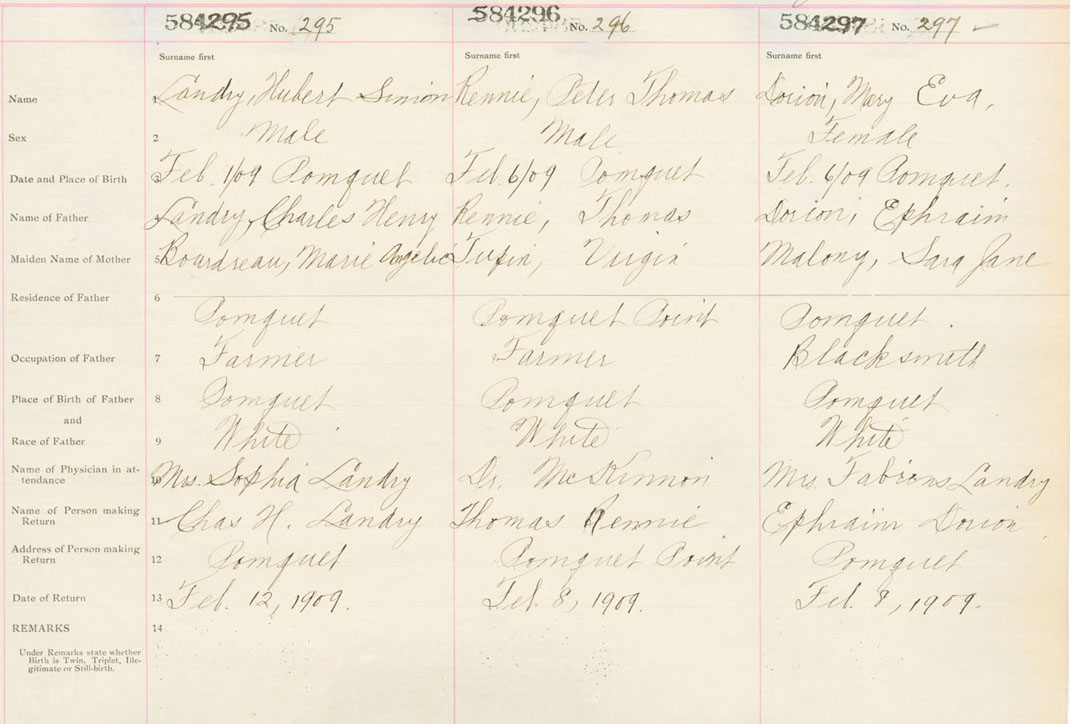 584295 No. 295 584296 No. 296 584297 No. 297
Surname first Surname first Surname first
Name 1 Landry, Hubert Simion Rennie, Peter Thomas Dorion, Mary Eva.
Sex 2 Male Male Female
Date and Place of Birth 3 Feb. 1/09 Pomquet Feb. 6/09 Pomquet Feb. 6/09 Pomquet.
Name of Father Landry, Charles Henry Rennie, Thomas Dorion, Ephraim
Maiden Name of Mother 5 Bourdreau, Marie Angelic Tufin, Virgin Malony, Sara Jane
Residence of Father 6
Pomquet Pomquet Point Pomquet.
Occupation of Father 7 Farmer Farmer Blacksmith
Place of Birth of Father 8 Pomquet Pomquet Pomquet
and
Race of Father 9 White White White
Name of Physician in at-
tendance 10 Mrs. Sophia Landry Dr. McKinnon Mrs. Landry
Name of Person making
Return 11 Chas H. Landry Thomas Rennie Ephraim Dorion
Address of Person making
Return 12 Pomquet Pomquet Point Pomquet
Date of Return 13 Feb. 12, 1909. Feb. 8, 1909. Feb. 8, 1909.
REMARKS 14
Under Remarks state whether
Birth is Twin, Triplet, Ille-
gitimate or Still-birth.